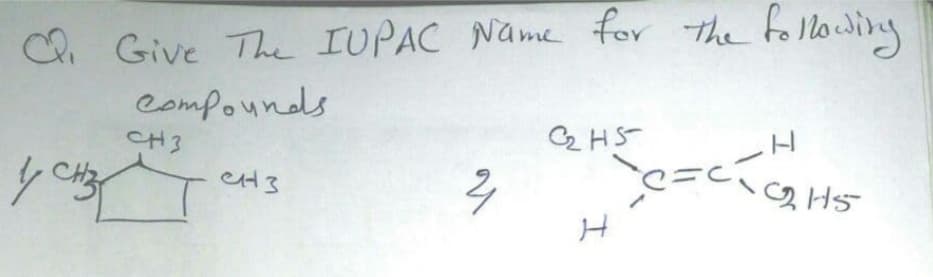 Q. Give The IUPAC Name for the following
compounds
CH3
1, CH3 CH3
2,
C2H5 H
C=C
H C2H5